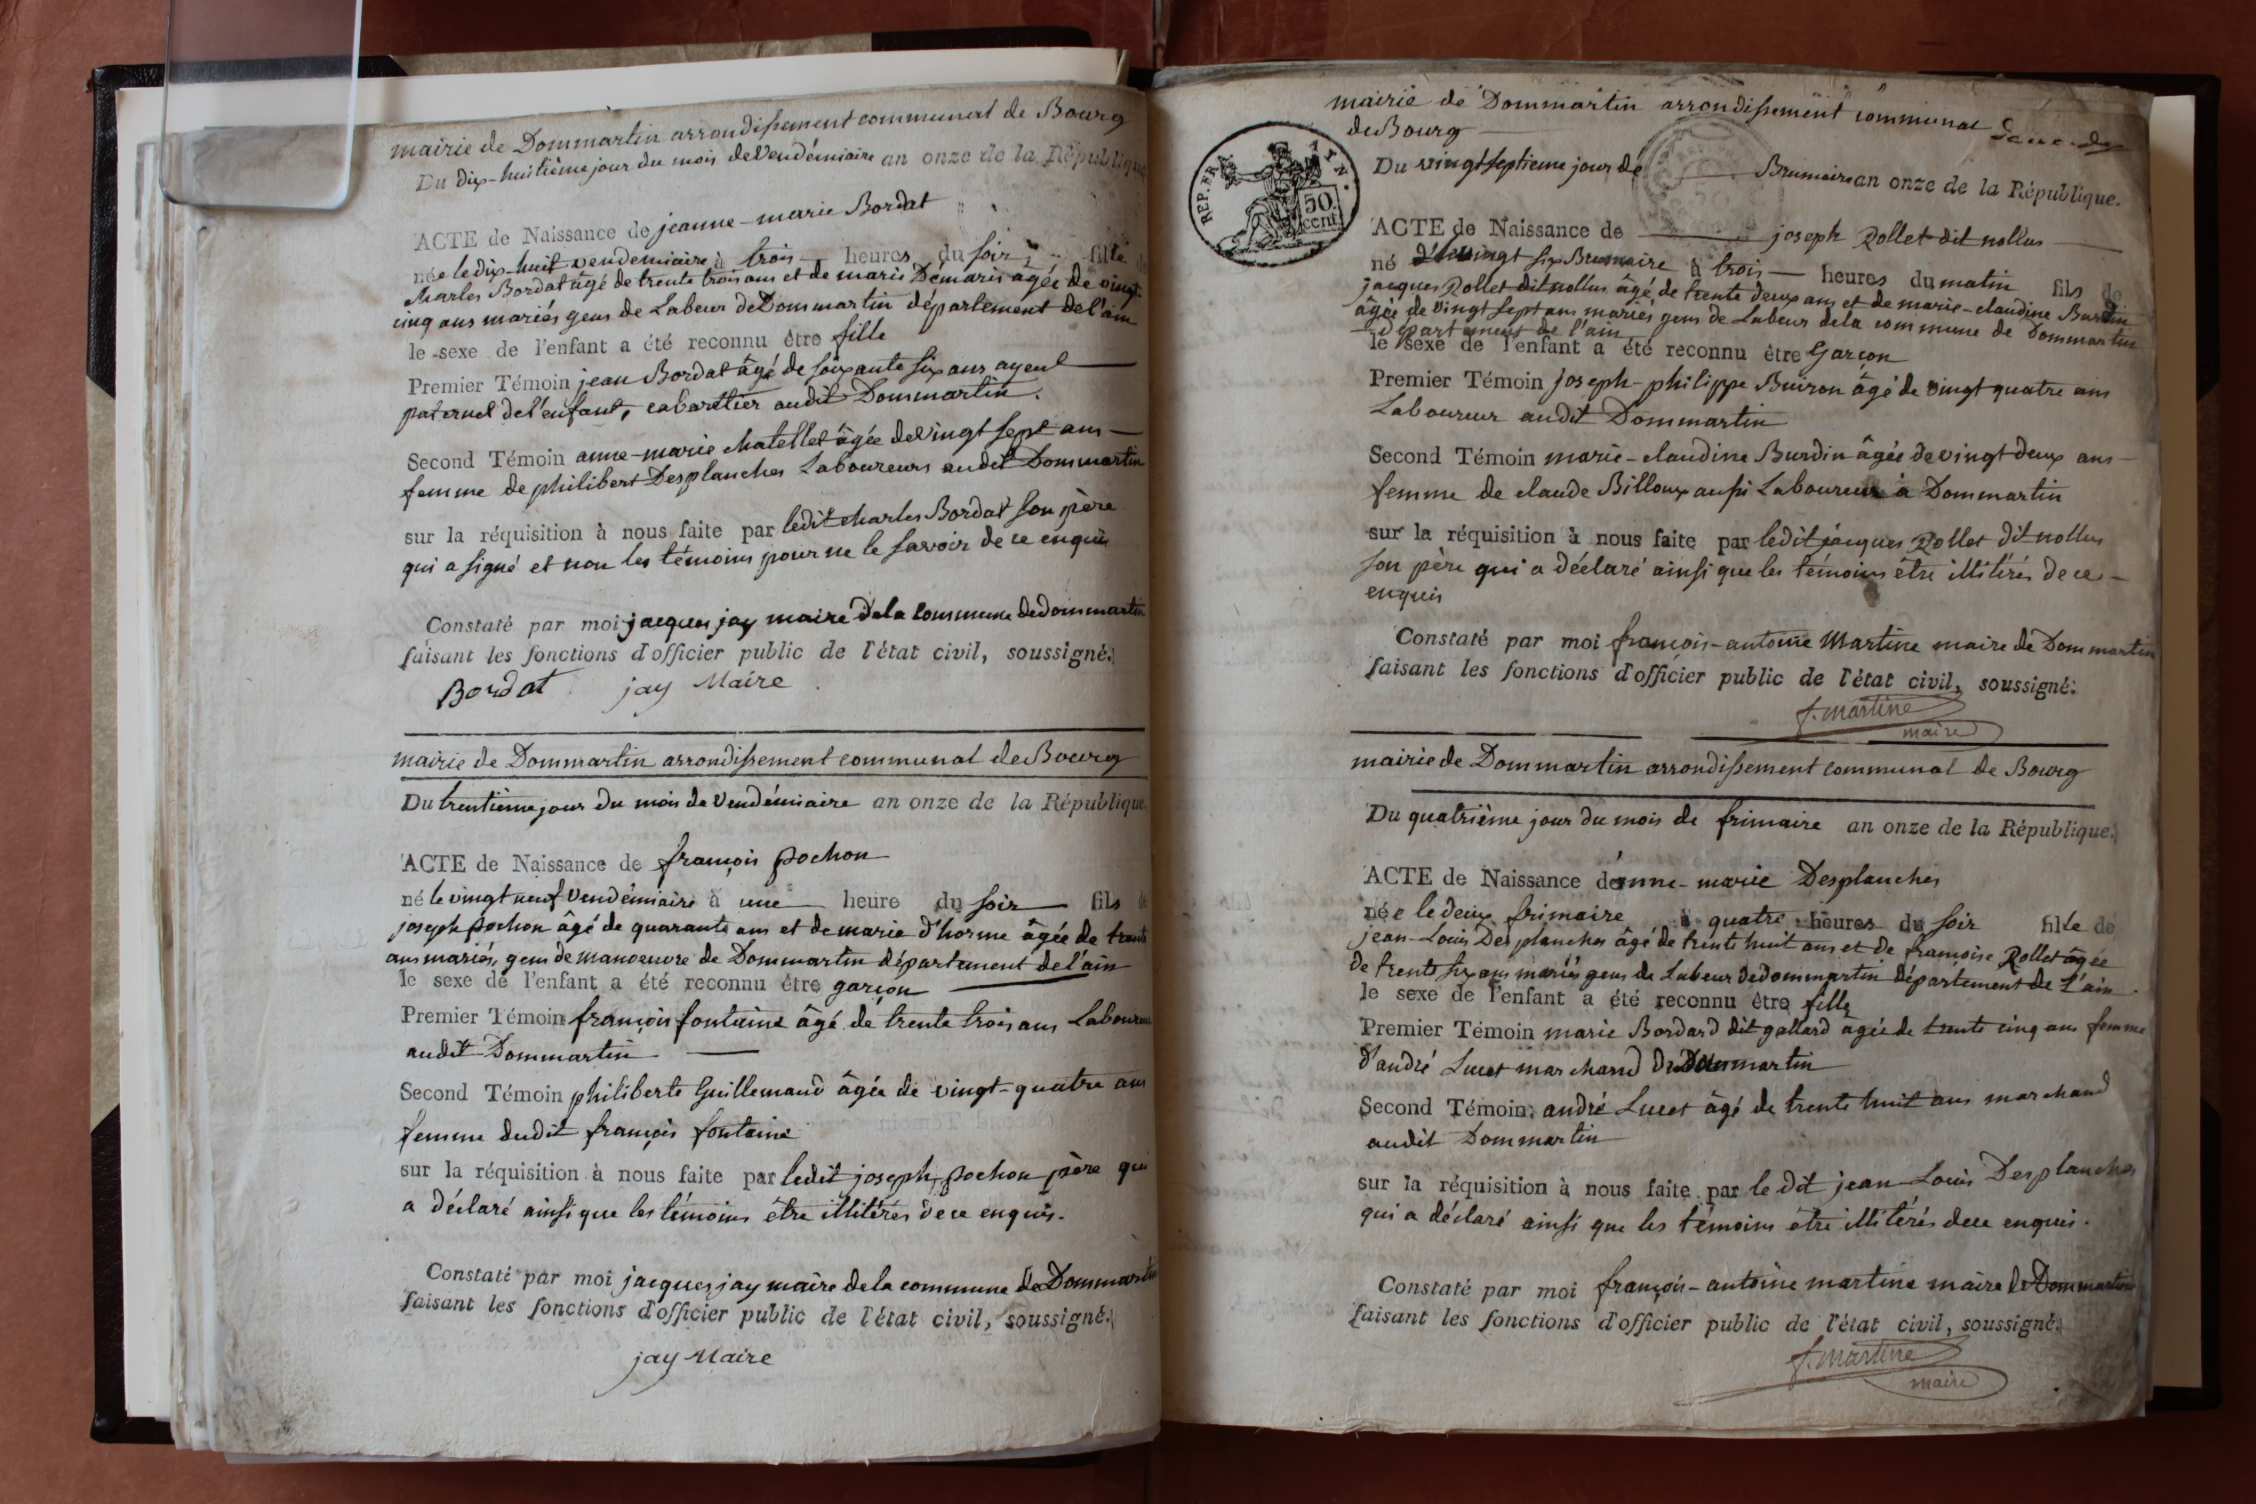 mairie de Dommartin arrondissement communal de Bourg
Du dix-huitième jour du mois de Vendémiaire an onze de la République
ACTE de Naissance de jeanne-marie Bordat
née le dix-huit vendemiaire à trois heures du soir fille de
charles Bordat âgé de trente trois ans et de marie Demaris âgée de vingt
cinq ans mariés gens de Labeur de Dommartin département de l'ain
le sexe de l'enfant a été reconnu être fille
Premier Témoin jean Bordat âgé de soixante six ans ayeul
paternel de l'enfant, cabaretier audit Dommartin.
Second Témoin anne-marie chatellet âgée de vingt sept ans
femme de philibert Desplanches Laboureurs audit Dommartin
sur la réquisition à nous faite par ledit charles Bordat son père
qui a signé et non les témoins pour ne le savoir de ce enquis
Constaté par moi jacques jay maire de la commune de dommartin
faisant les fonctions d'officier public de l'état civil, soussigné.
Bordat jay Maire
mairie de Dommartin arrondissement communal de Bourg
Du trentième jour du mois de Vendémiaire an onze de la République
ACTE de Naissance de françois pochon
né le vingt neuf Vendémiaire à une heure du soir fils de
joseph pochon âgé de quarante ans et de marie d'horme âgée de trente
ans mariés, gens de manoeuvre de Dommartin département de l'ain
le sexe de l'enfant a été reconnu être garçon
Premier Témoin françois fontaine âgé de trente trois ans Laboureur
audit Dommartin
Second Témoin philiberte Guillemaud âgée de vingt-quatre ans
femme dudit françois fontaine
sur la réquisition à nous faite par ledit joseph pochon père qui
a déclaré ainsi que les témoins être illitérés de ce enquis.
Constaté par moi jacques jay maire de la commune de Dommartin
faisant les fonctions d'officier public de l'état civil, soussigné.
jay Maire
mairie de Dommartin arrondissement communal
de Bourg
REP. FRA. 50 cent.
Du vingt septieme jour de Brumaire an onze de la République.
ACTE de Naissance de joseph Rollet dit nollus
né le vingt six Brumaire à trois heures du matin fils de
jacques Rollet dit nollus âgé de trente deux ans et de marie-claudine Burdin
âgée de vingt sept ans mariés gens de Labeur de la commune de Dommartin
département de l'ain
le sexe de l'enfant a été reconnu être Garçon
Premier Témoin joseph-philippe Buiron âgé de vingt quatre ans
Laboureur audit Dommartin
Second Témoin marie-claudine Burdin âgée de vingt deux ans
femme de claude Billoux aussi Laboureur à Dommartin
sur la réquisition à nous faite par ledit jacques Rollet dit nollus
son père qui a déclaré ainsi que les témoins être illitérés de ce
enquis
Constaté par moi françois-antoine Martine maire de Dommartin
faisant les fonctions d'officier public de l'état civil, soussigné.
f. martine
maire
mairie de Dommartin arrondissement communal de Bourg
Du quatrième jour du mois de frimaire an onze de la République.
ACTE de Naissance d'anne-marie Desplanches
née le deux frimaire à quatre heures du soir fille de
jean-Louis Desplanches âgé de trente huit ans et de françoise Rollet âgée
de trente six ans mariés gens de Labeur de dommartin département de l'ain.
le sexe de l'enfant a été reconnu être fille
Premier Témoin marie Bordard dit gallard agée de trente cinq ans femme
d'andré Lucet marchand de Dommartin
Second Témoin andré Lucet âgé de trente huit ans marchand
audit Dommartin
sur la réquisition à nous faite par le dit jean Louis Desplanches
qui a déclaré ainsi que les témoins être illitérés de ce enquis.
Constaté par moi françois-antoine martine maire de Dommartin
faisant les fonctions d'officier public de l'état civil, soussigné.
f. martine
maire